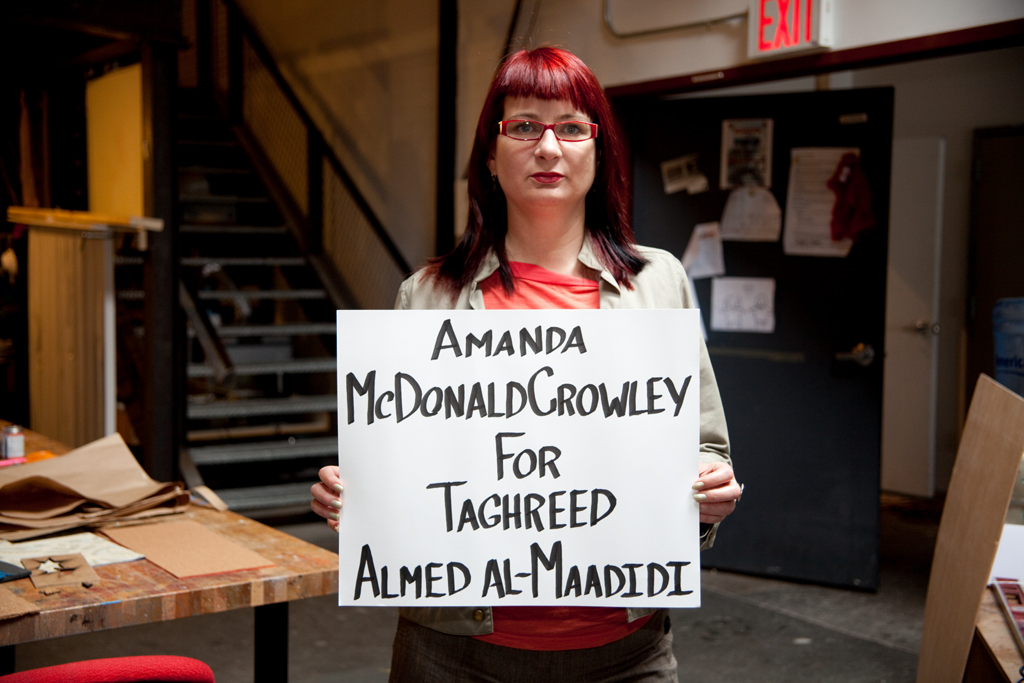 EXIT
AMANDA
McDONALDCROWLEY
FOR
TAGHREED
ALMED AL-MAADIDI